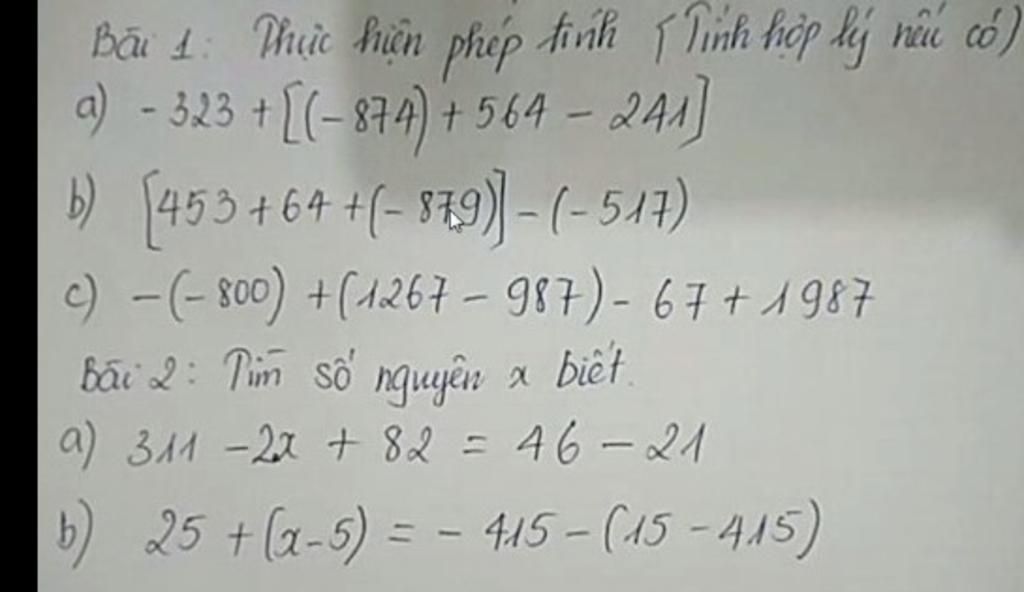 Bài 1: Thực hiện phép tính (Tính hợp lý nếu có)
a) - 323 + [(- 874) + 564 - 241]
b) [453 + 64 + (- 879)] - (- 517)
c) - (- 800) + (1267 - 987) - 67 + 1987
Bài 2: Tìm số nguyên x biết.
a) 311 - 2x + 82 = 46 - 21
b) 25 + (x - 5) = - 415 - (15 - 415)